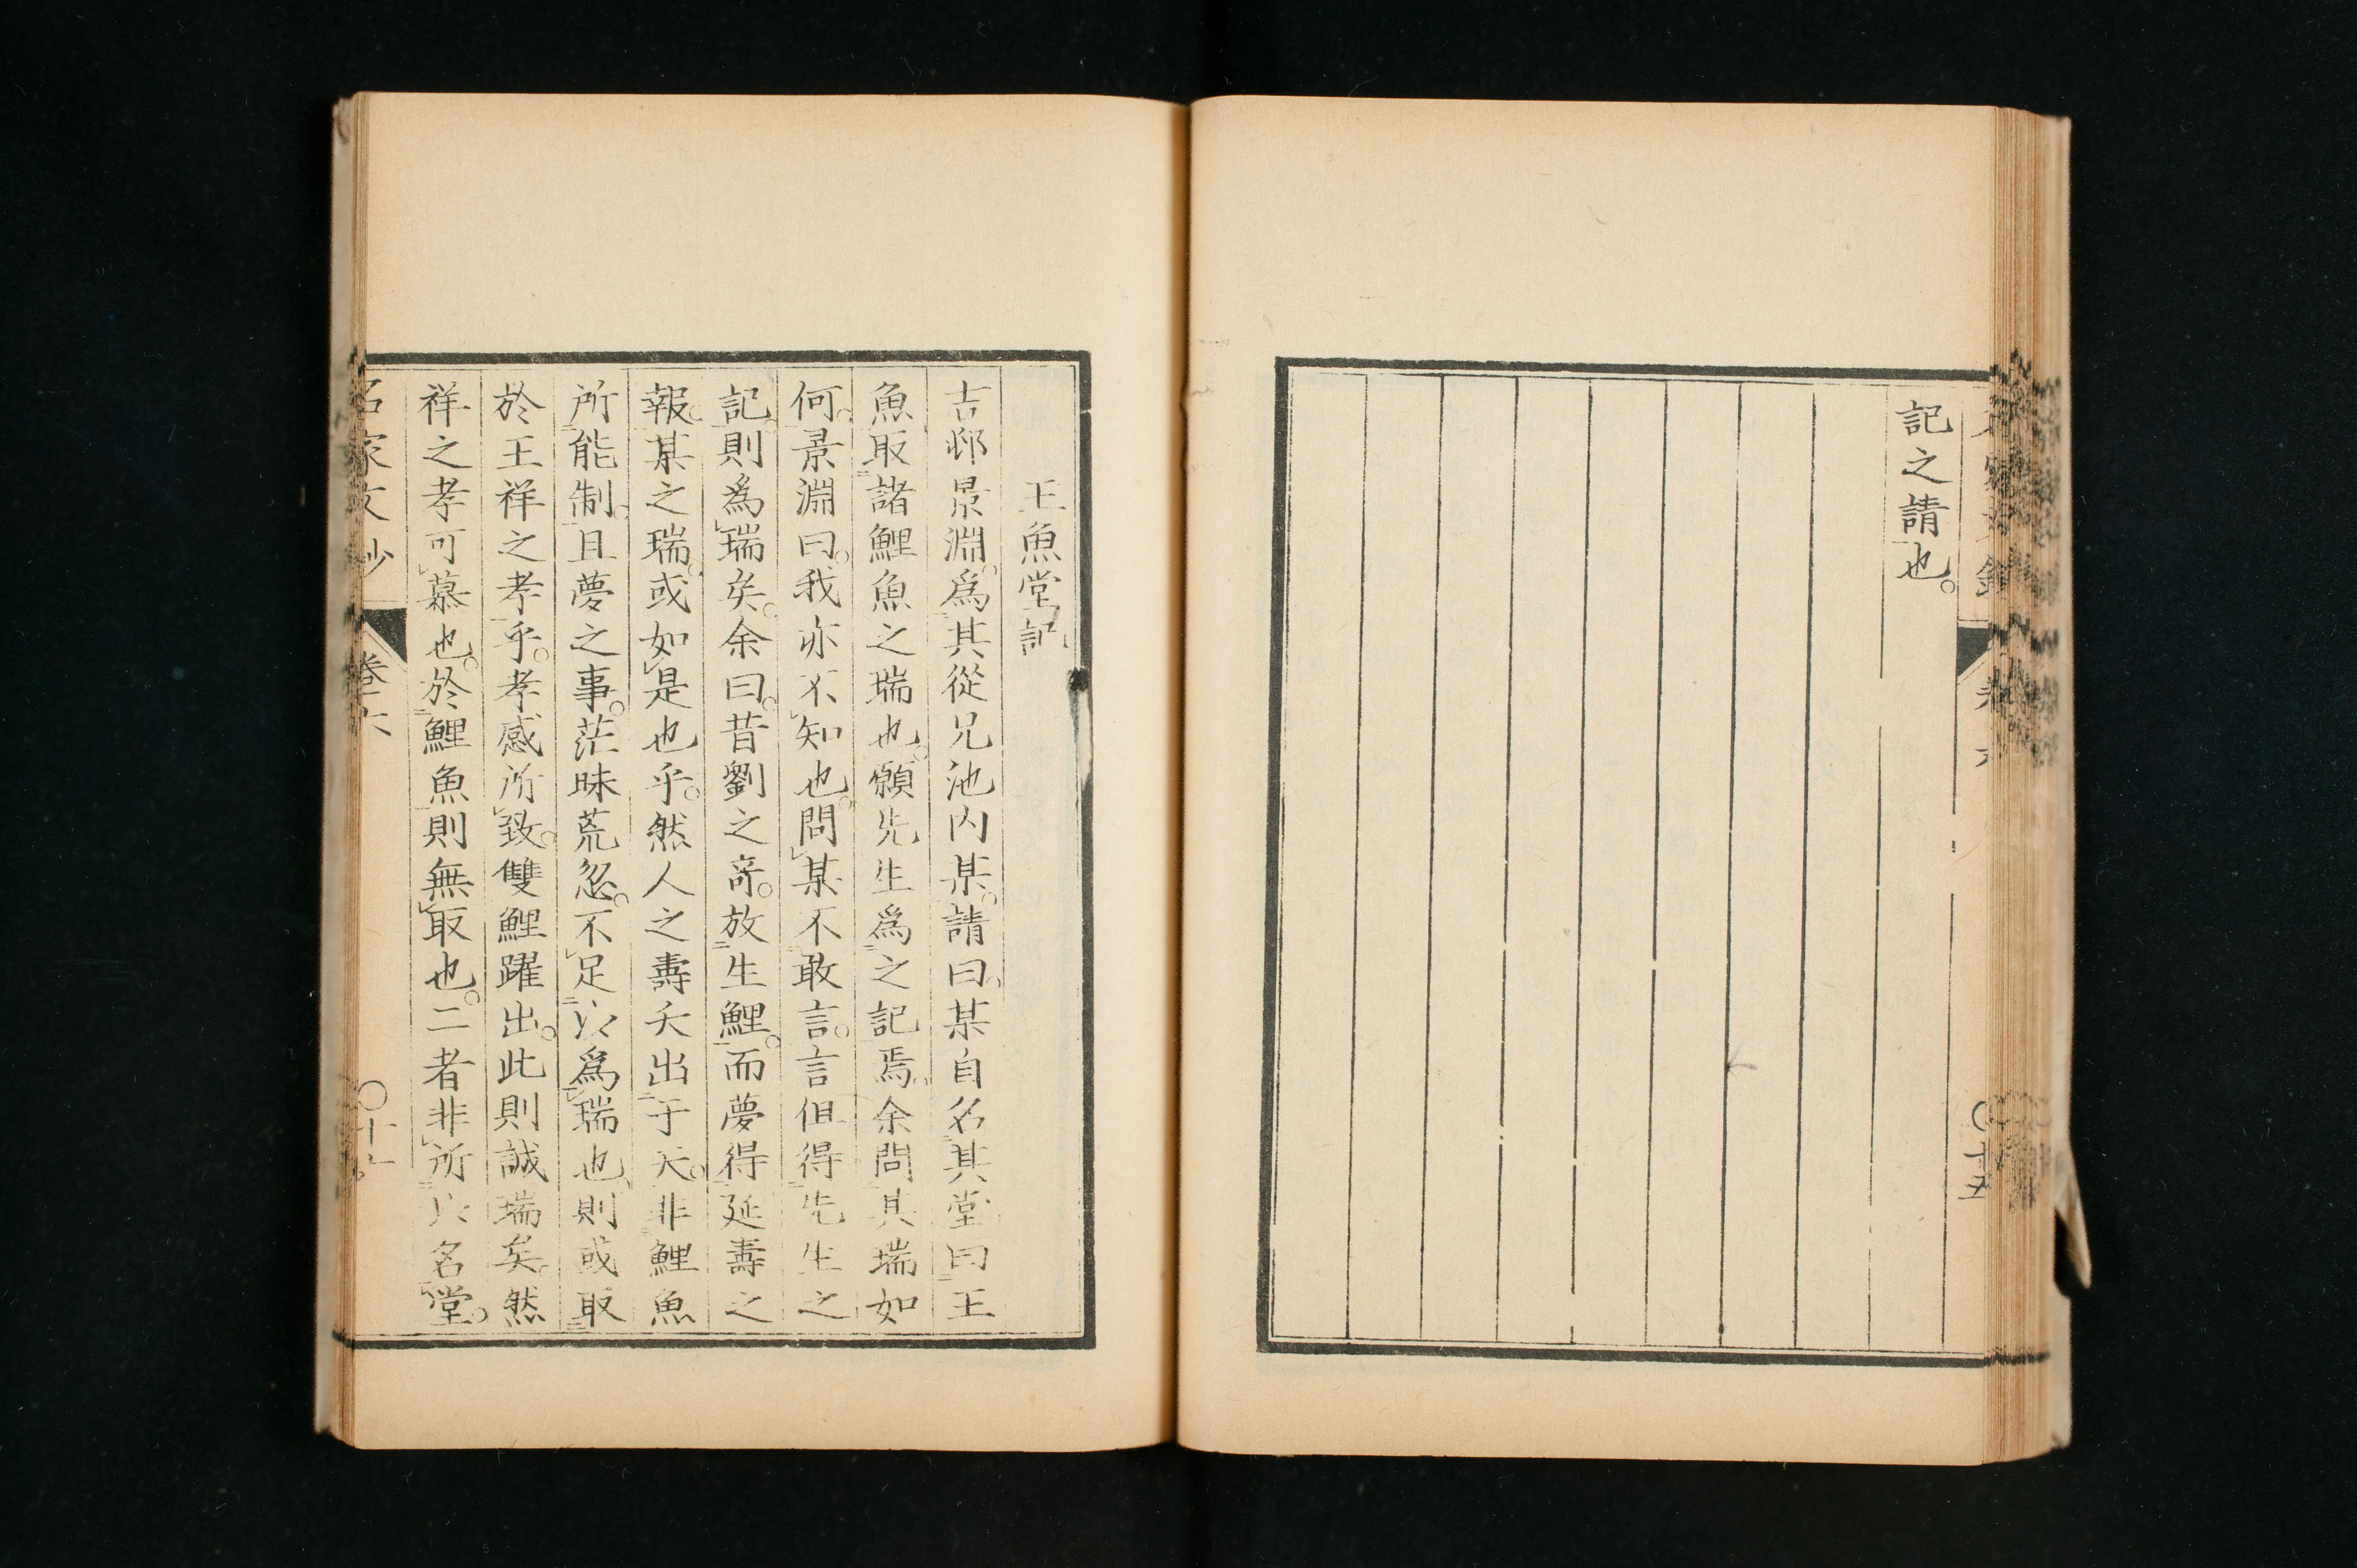 記之請也。
王魚堂記
吉邨景淵。爲其從兄池内某。請曰。某自名其堂曰王
魚取諸鯉魚之瑞也。願先生爲之記焉。余問其瑞如
何。景淵曰。我亦不知也。問某不敢言。言但得先生之
記。則爲瑞矣。余曰。昔劉之奇。放生鯉。而夢得延壽之
報。某之瑞。或如是也乎。然人之壽夭出于天。非鯉魚
所能制。且夢之事。茫昧荒忽。不足以爲瑞也。則或取
於王祥之孝乎。孝感所致。雙鯉躍出。此則誠瑞矣。然
祥之孝可慕也。於鯉魚則無取也。二者非所以名堂。
名家文抄 卷六